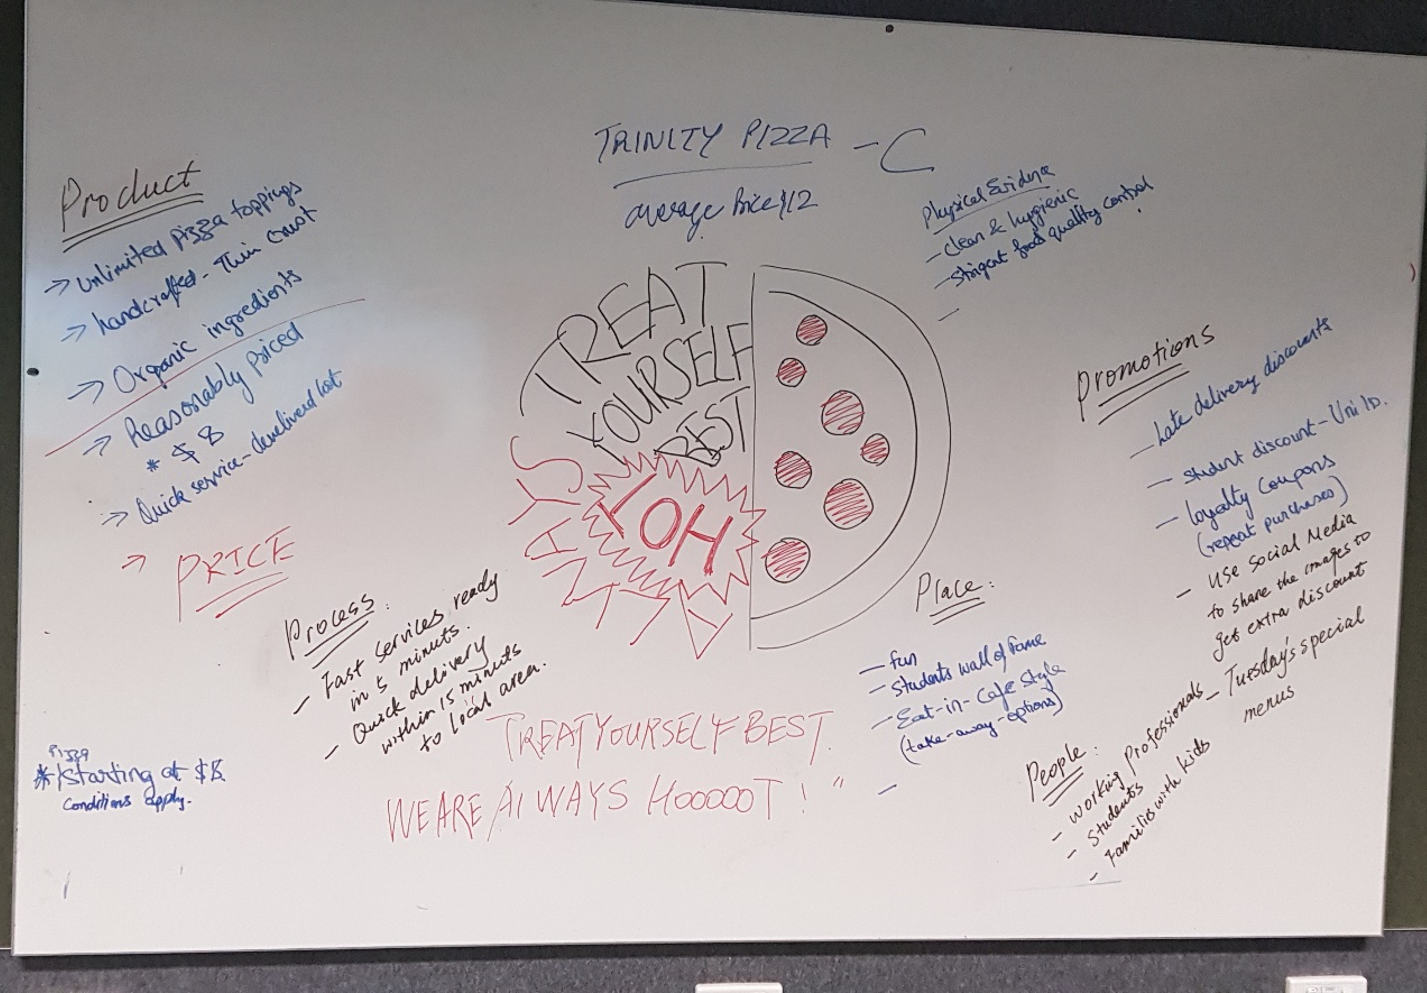 TRINITY PIZZA - C
average Price $12
Product
→ Unlimited pizza toppings
→ handcrafted - Thin crust
→ Organic ingredients
→ Reasonably priced
* $ 8
→ Quick service - delivered hot
→ PRICE
Physical Evidence
- clean & hygienic
- stringent food quality control
-
TREAT
YOURSELF
BEST
ALWAYS
HOT
Promotions
- Late delivery discounts
- Student discount - Uni ID.
- loyalty coupons
(repeat purchases)
- Use Social Media
to share the images to
get extra discount
- Tuesday's special
menus
Process:
- Fast services ready
in 5 minuts.
- Quick delivery
within 15 minuts
to local area.
Place:
- fun
- Students wall of fame
- Eat-in-Cafe Style
(take-away-options)
-
People:
- Working Professionals
- Students
- Families with kids
TREAT YOURSELF BEST.
WE ARE ALWAYS HOOOOOT! "
Pizza
* Starting at $8
Conditions apply.